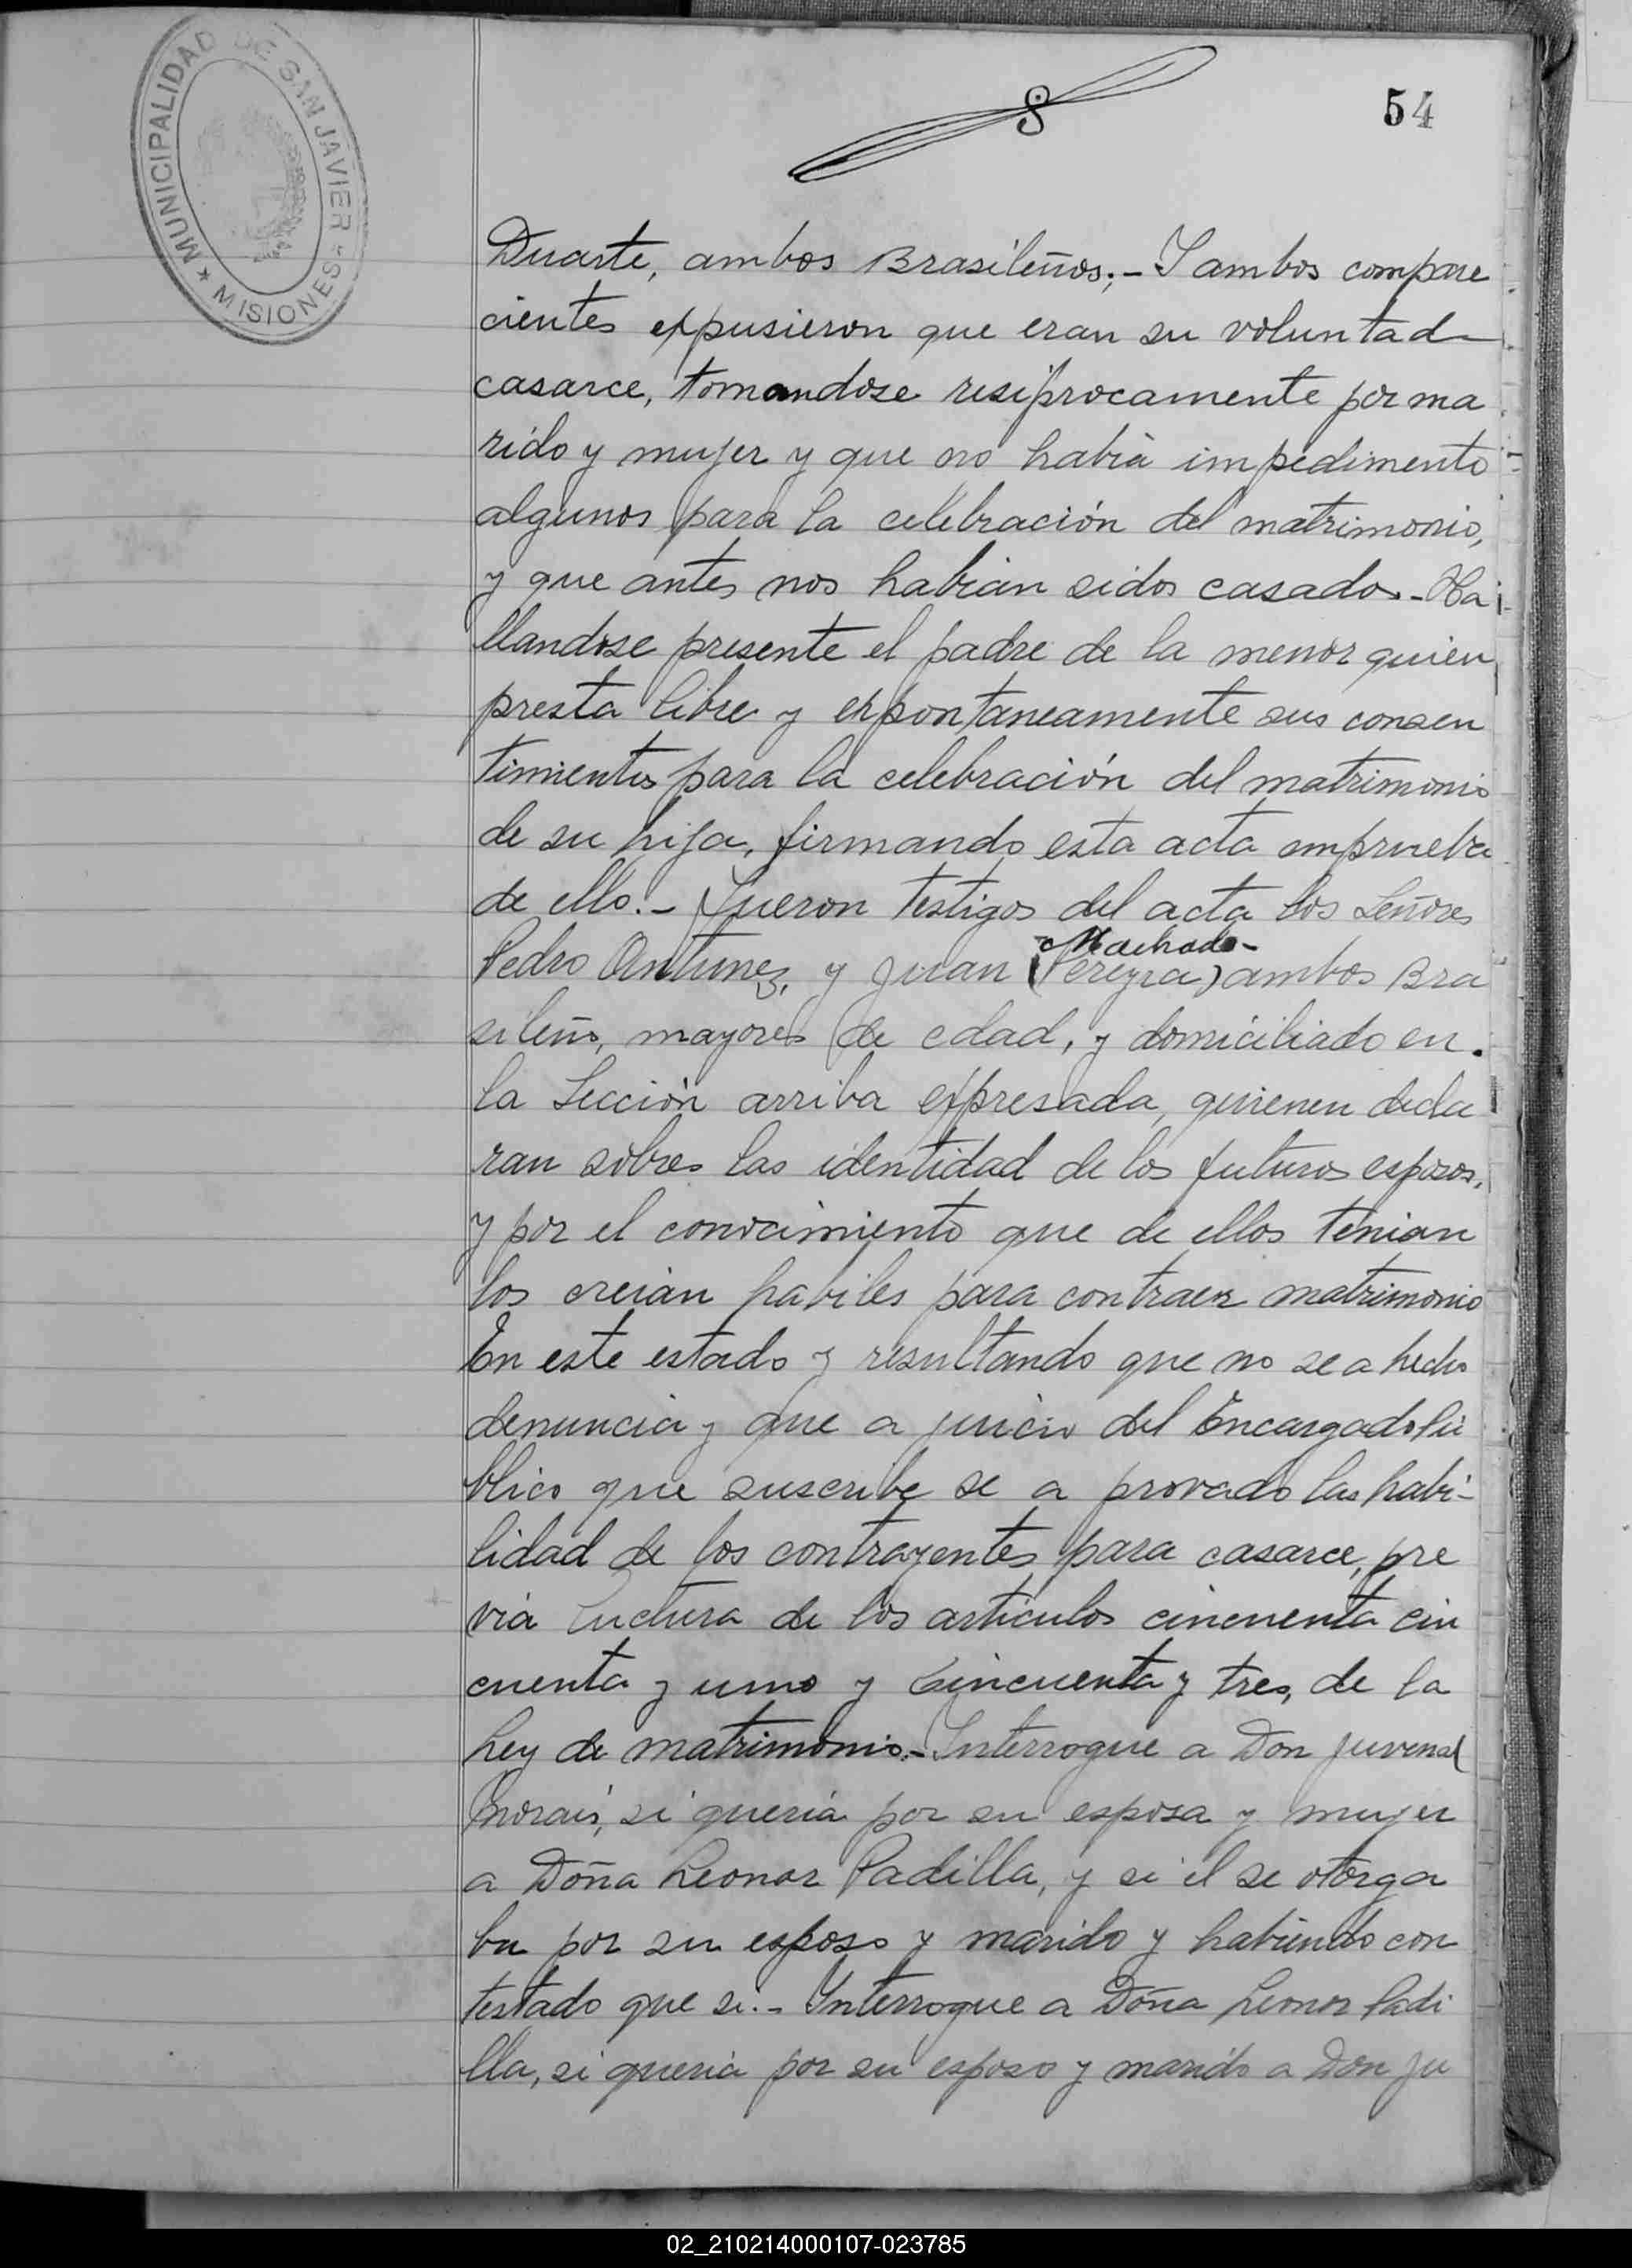 MUNICIPALIDAD DE SAN JAVIER
* MISIONES *
54
Duarte, ambos Brasileños;- Y ambos compare
cientes expusieron que eran su voluntad
casarce, tomandose resiprocamente por ma
rido y mujer y que no había impedimento
algunos para la celebración del matrimonio,
y que antes nos habían sidos casados.- Ha
llandose presente el padre de la menor quien
presta libre y expontaneamente sus consen
timientos para la celebración del matrimonio
de su hija, firmando esta acta emprueba
de ello.- Fueron testigos del acta los Señores
Machado-
Pedro Antunez, y Juan (Pereyra) ambos Bra
sileño, mayores de edad, y domiciliado en
la Sección arriba expresada, quienen decla
ran sobres las identidad de los futuros esposos,
y por el conocimiento que de ellos tenian
los creian habiles para contraer matrimonio
En este estado y resultando que no se a hecho
denuncia y que a juicio del Encargado Pú
blico que suscribe se a provado las habi-
lidad de los contrayentes, para casarce, pre
via luctura de los artículos cincuenta cin
cuenta y uno y Cincuenta y tres, de la
Ley de matrimonio.- Interrogue a Don Juvenal
Morais, si quería por su esposa y mujer
a Doña Leonor Padilla, y si él se otorga
ba por su esposo y marido y habiendo con
testado que si.- Interrogue a Doña Leonor Padi
lla, si quería por su esposo y marido a Don Ju
02_210214000107-023785